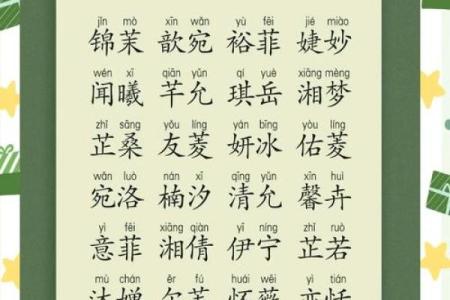 jǐn mò xīn wǎn yù fēi jié miào
锦茉 歆宛 裕菲 婕妙
wén xī qiān yǔn qí yuè xiāng mèng
闻曦 芊允 琪岳 湘梦
zhǐ sāng yǒu líng yán bīng yòu líng
芷桑 友菱 妍冰 佑菱
wǎn luò nán xī qīng yǔn xīn huì
宛洛 楠汐 清允 馨卉
yì fēi xiāng qiàn yī níng zhǐ ruò
意菲 湘倩 伊宁 芷若
mù chán ěr fú huái wēi yì tián